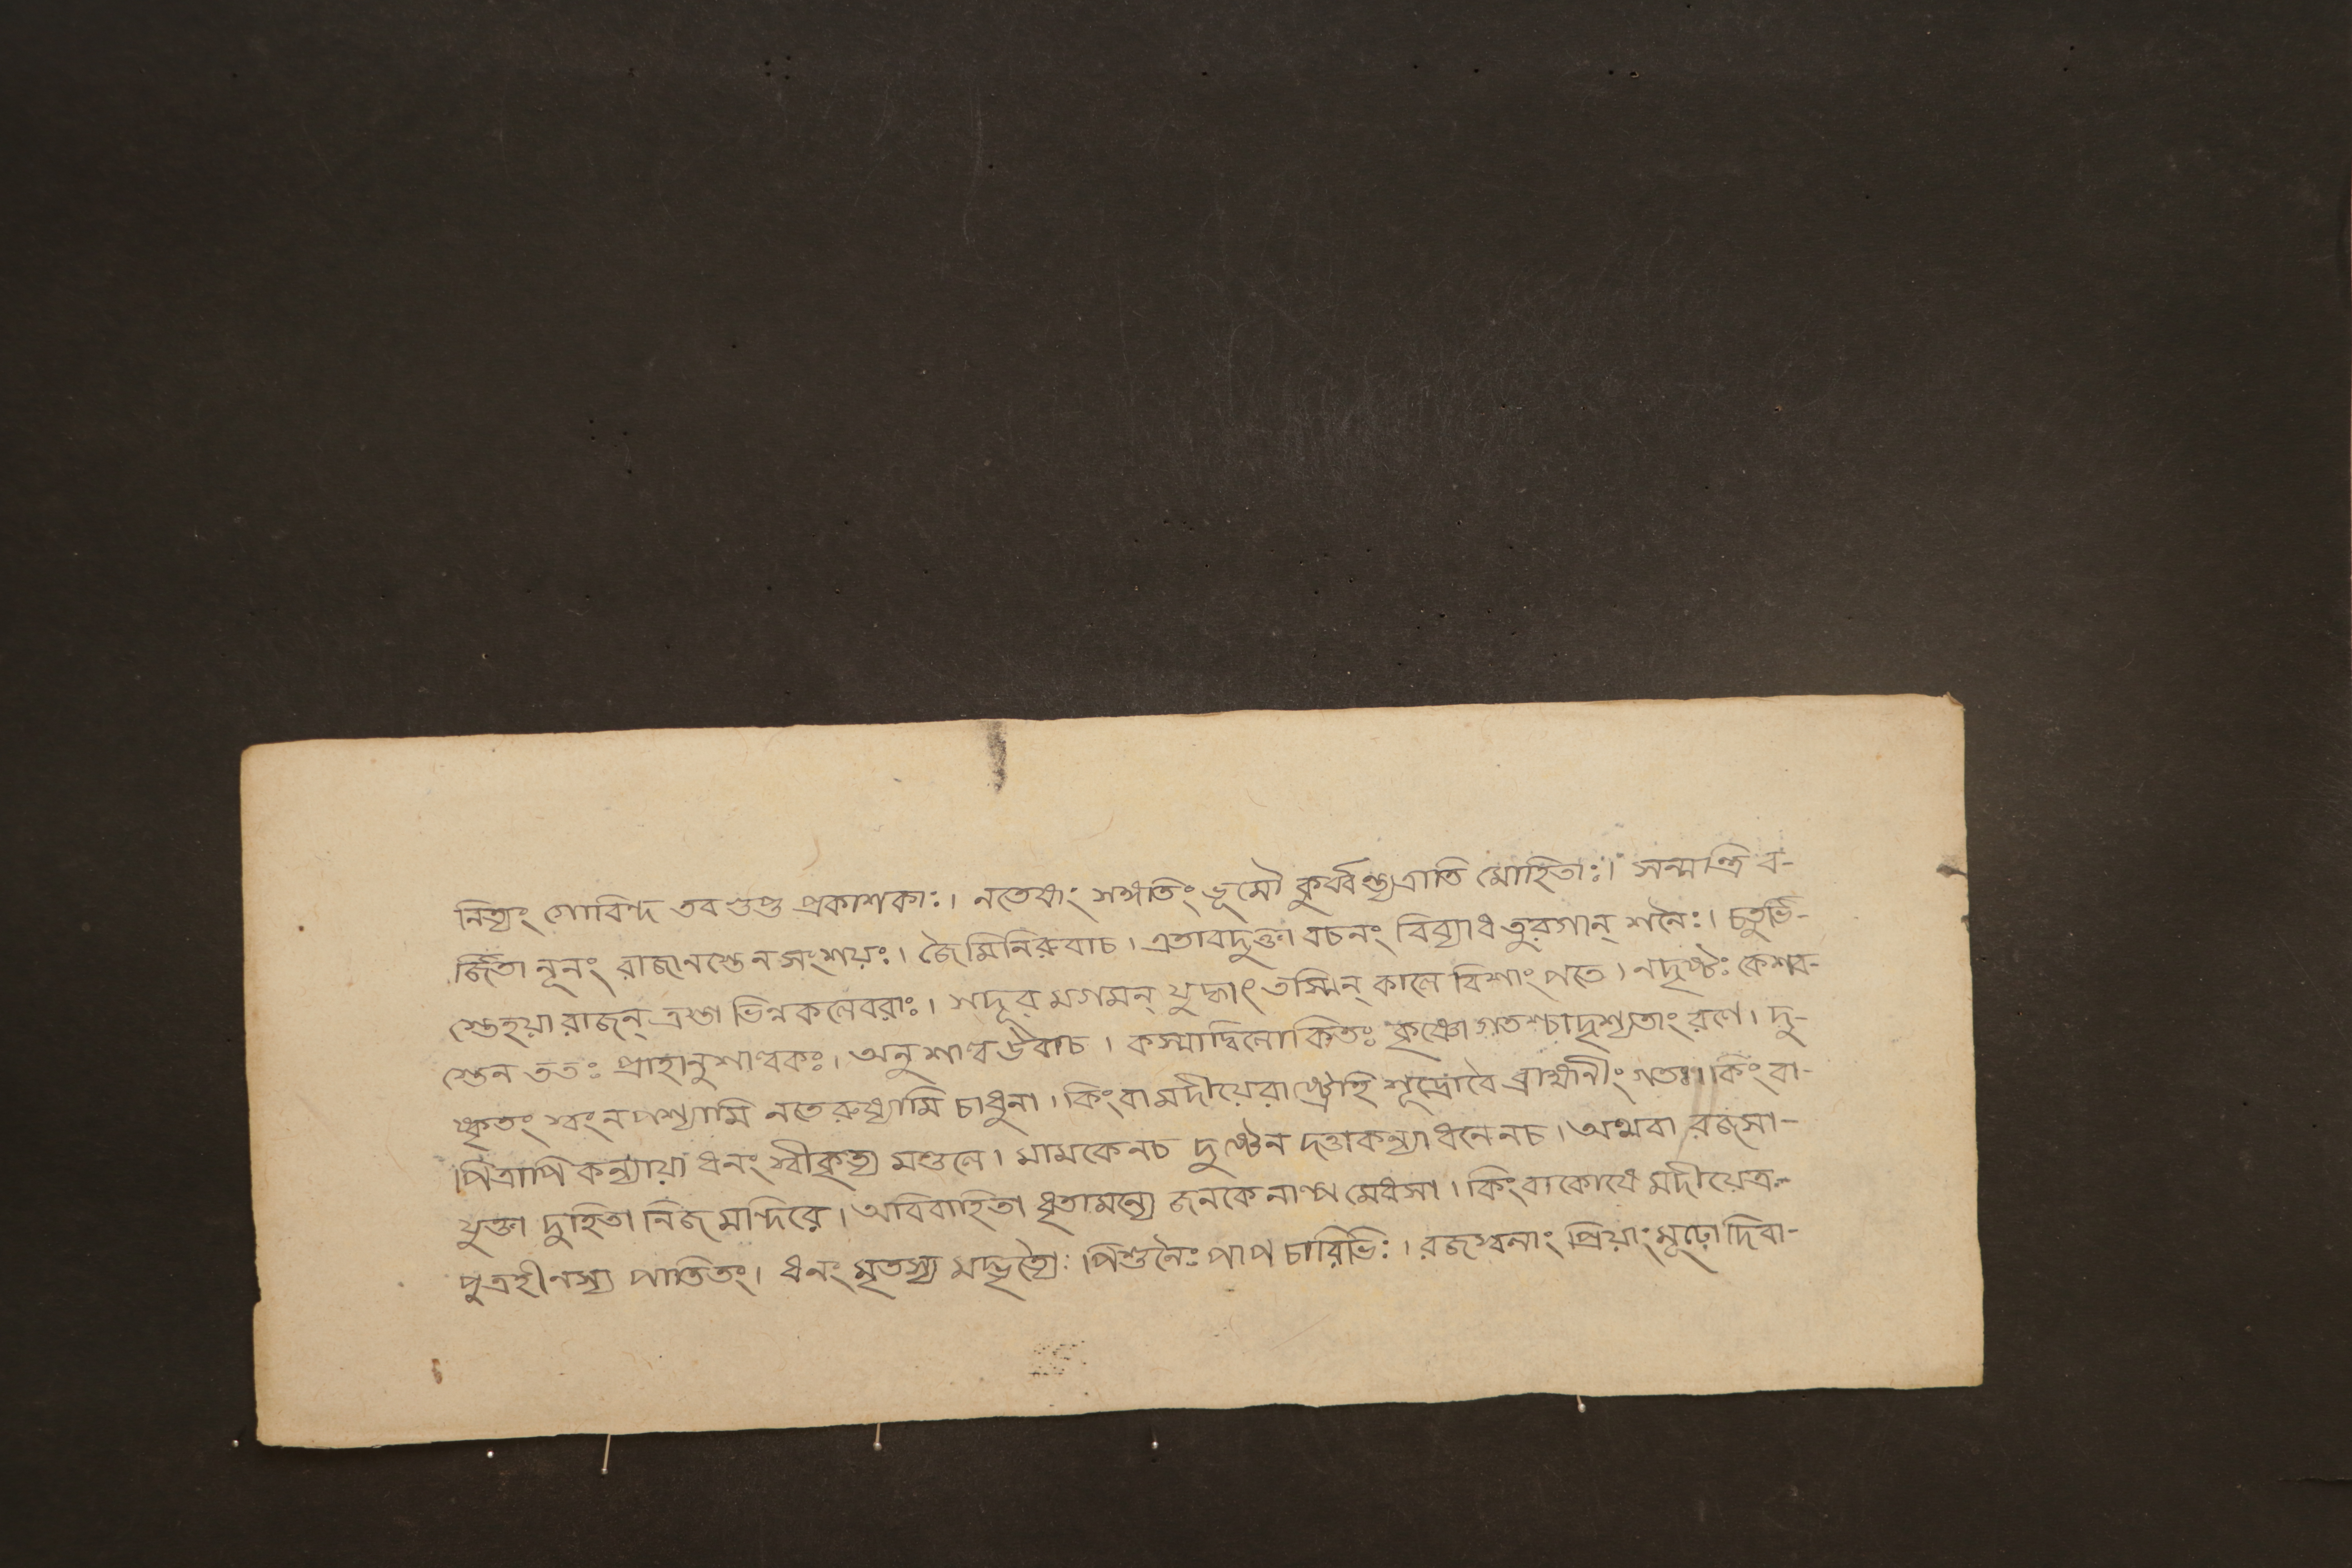 নিত্যং গোবিন্দ তব গুপ্ত প্রকাশকাঃ। নতেষাং সঙ্গতিং ভূমৌ কুর্ব্বন্ত্যত্রাতি মোহিতাঃ। সন্মন্ত্রি ব-
র্জিতা নূনং রাজানস্তেনসংশয়ঃ। জৈমিনিরুবাচ। এতাবদুক্তা বচনং বিব্যাধ তুরগান্ শনৈঃ। চতুর্ভি-
স্তেহয়া রাজন্ ত্রস্তা ভিন্নকলেবরাঃ। সদূর মগমন্ যুদ্ধাৎ তস্মিন্ কালে বিশাংপতে। নদৃষ্টঃ কেশব-
স্তেন ততঃ প্রাহানুশাল্বকঃ। অনুশাল্ব উবাচ। কস্মাদ্বিলোকিতঃ কৃষ্ণো গতশ্চাদৃশ্যতাং রণে। দু-
ষ্কৃতং স্বংনপশ্যামি নতেরুধ্যামি চাধুনা। কিংবা মদীয়েরাষ্ট্রেহি শূদ্রোবৈ ব্রাহ্মনীং গতঃ। কিংবা-
পিত্রাপি কন্যায়া ধনং স্বীকৃত্য মণ্ডলে। মামকেনচ দুষ্টেন দত্তাকন্যা ধনেনচ। অথবা রজসা-
যুক্তা দুহিতা নিজ মন্দিরে। অবিবাহিতা ধৃতামন্যে জনকেনাল্প মেধসা। কিংবাকোষে মদীয়েত্র-
পুত্রহীনস্য পাতিতং। ধনং মৃতস্য মদ্ভৃত্যৈঃ পিশুনৈঃ পাপচারিভিঃ। রজস্বলাং প্রিয়াংমূঢ়ো দিবা-